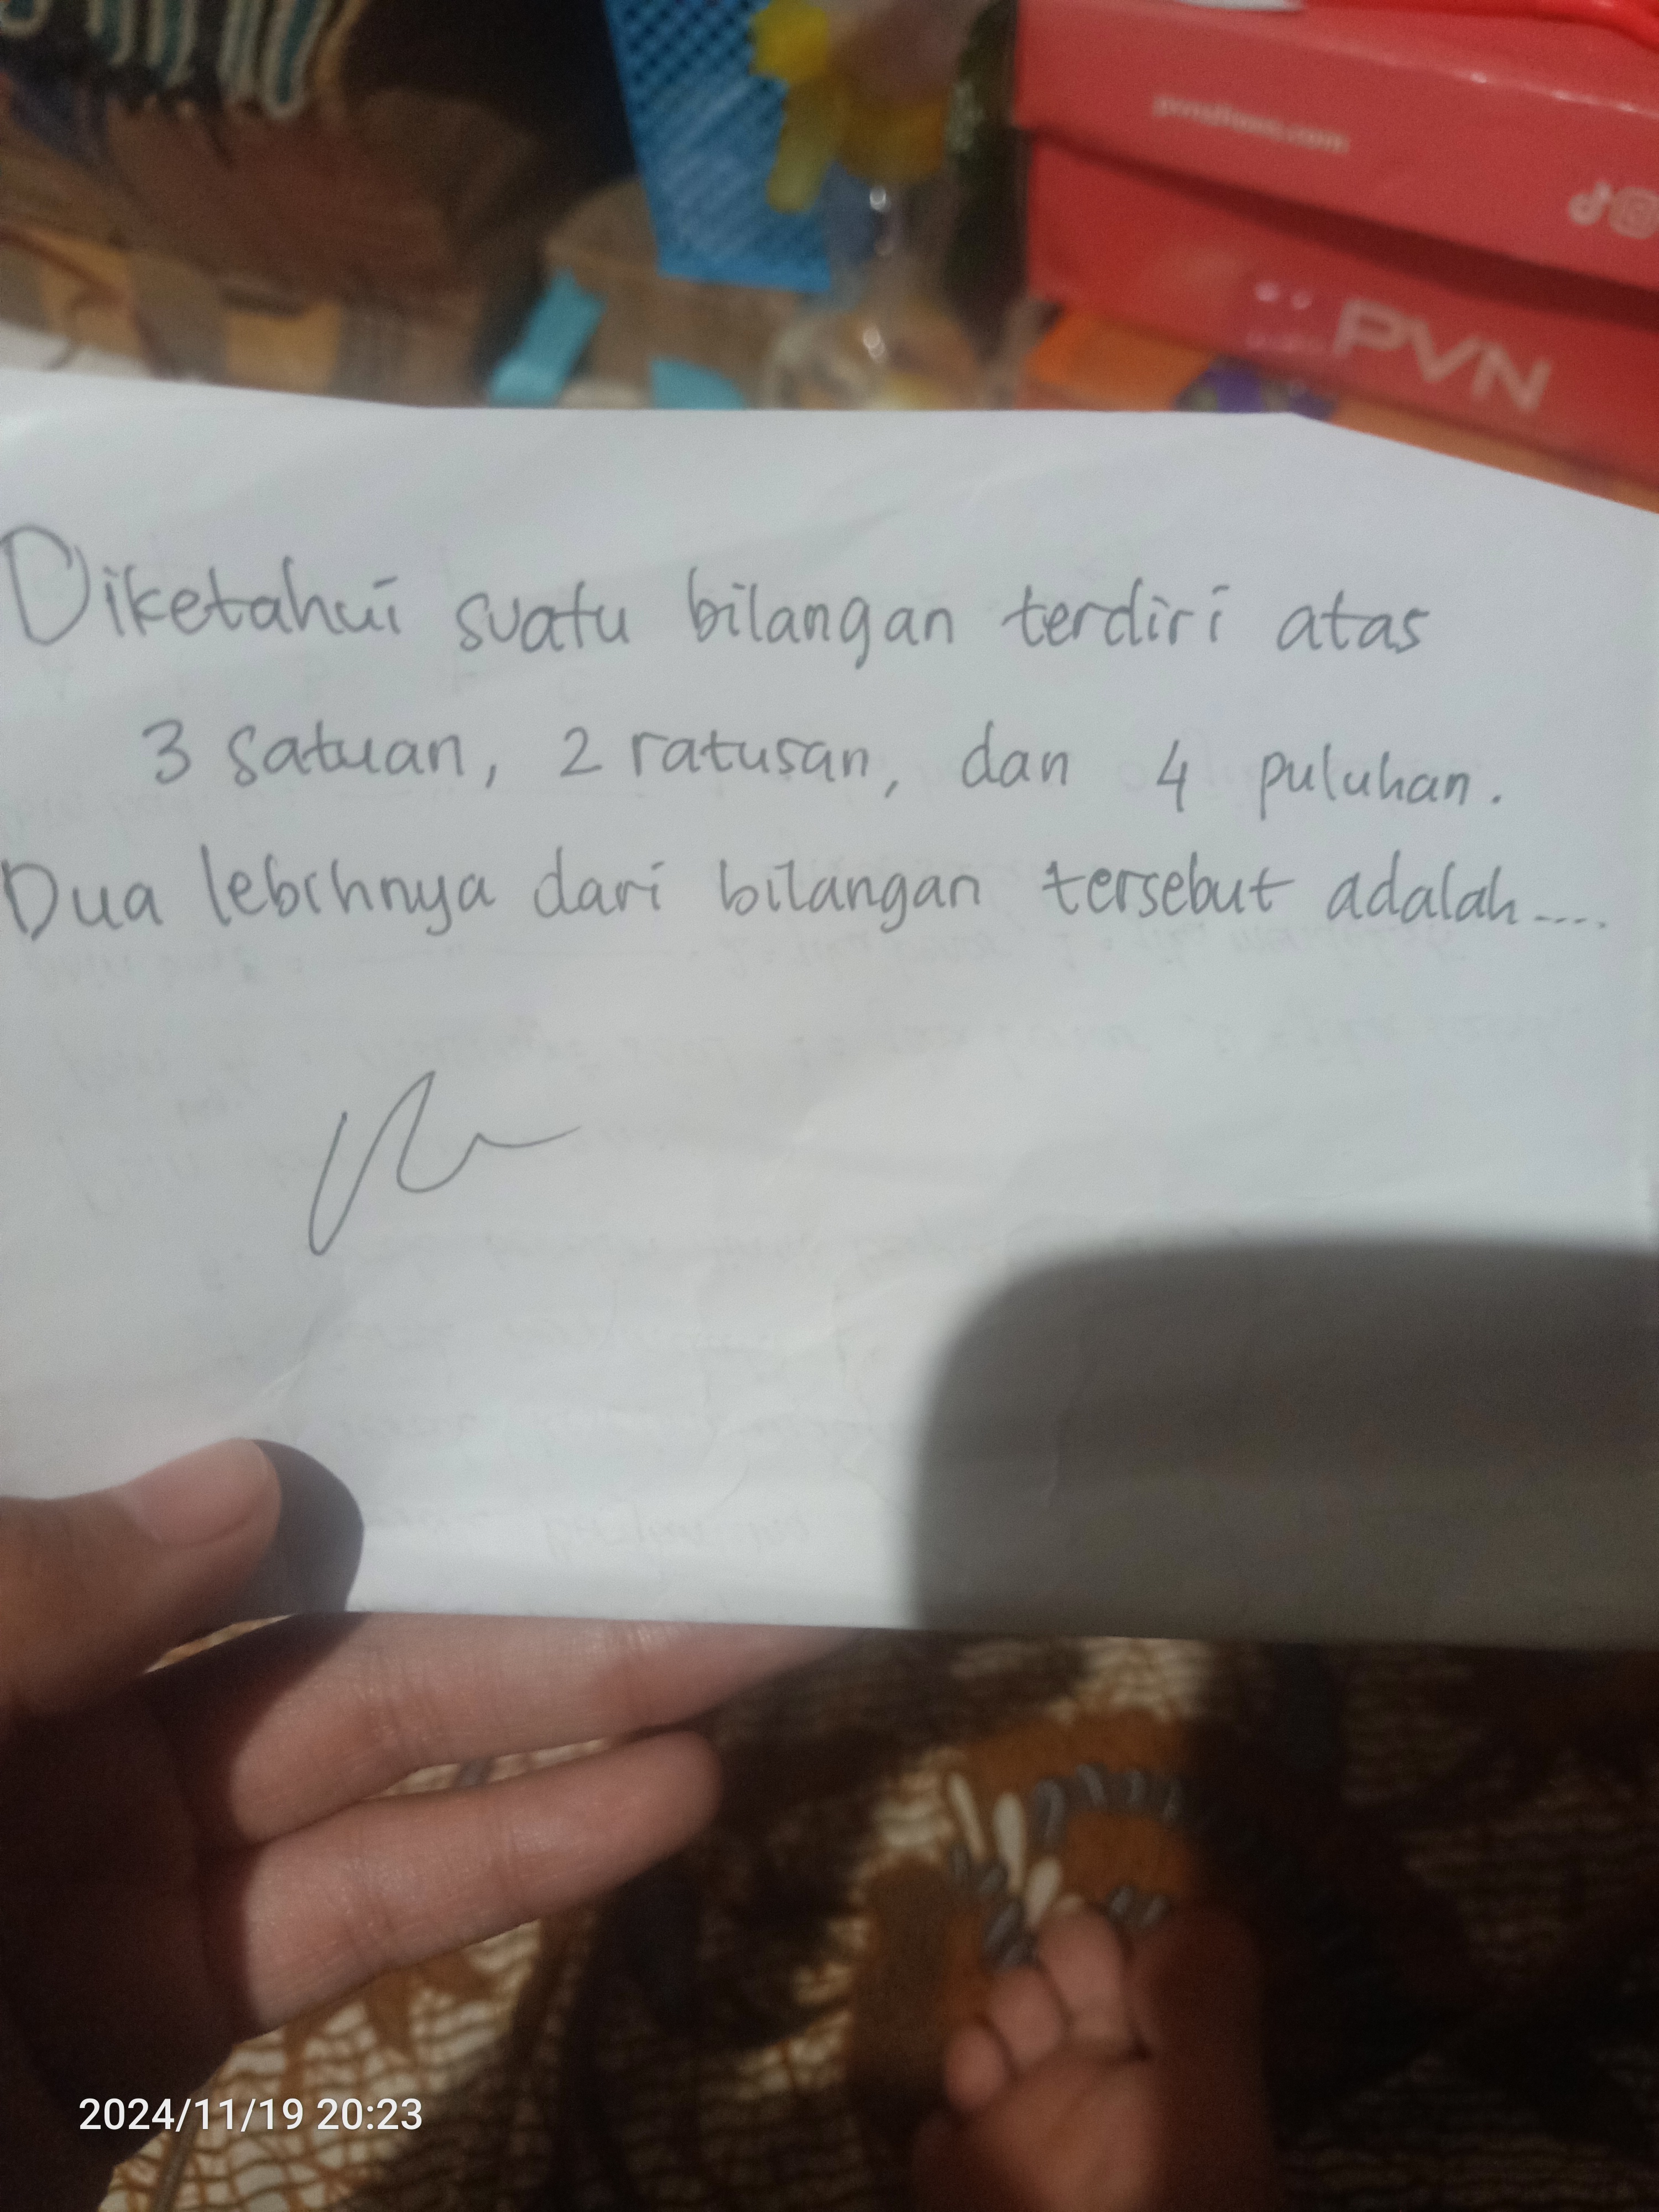 PVN
Diketahui suatu bilangan terdiri atas
3 satuan, 2 ratusan, dan 4 puluhan.
Dua lebihnya dari bilangan tersebut adalah....
2024/11/19 20:23